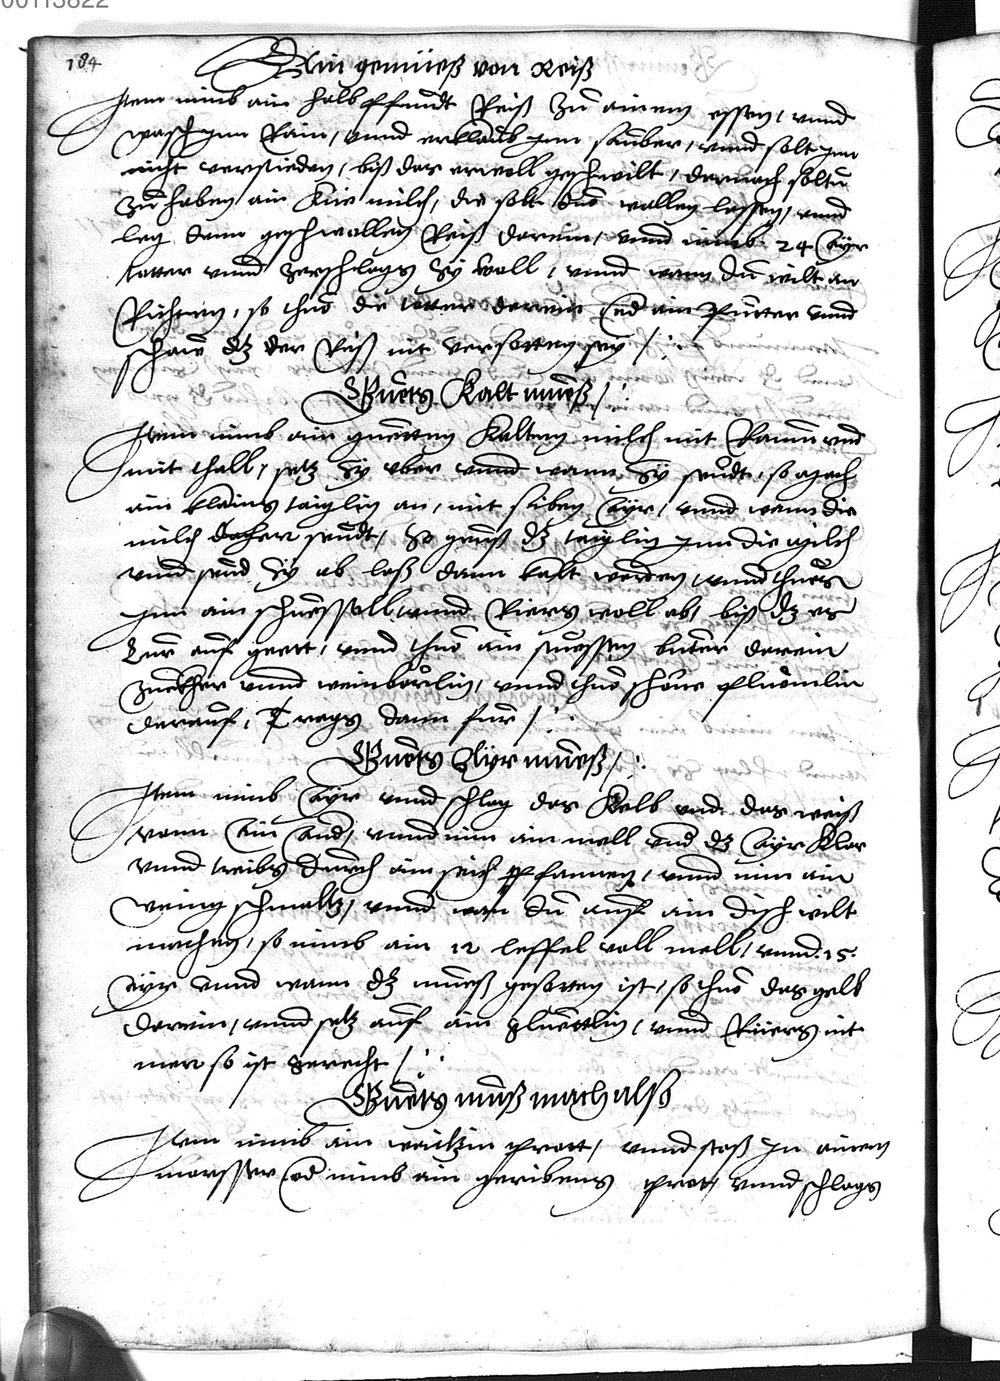 00113822
184
Ain gemüeß von Reiß
Item nimb ain halb pfundt Reiß zu ainem essen, vnnd
wasch jnn Rain, vnnd erklaub jnn sauber, vnnd solt jnn
nicht versieden, biß das er woll geschwilt, darnach soltu
zu haben ain kue milch, die solt duo wallen lassen, vnnd
leg denn geschwallen Reiß darein, vnnd nimb 24 Ayr
totter vnnd zerschlags sy woll, vnnd wann du wilt an
Richten, so thuo die totter darein vnd ain Putter vnnd
schaw dz der Reiß nit versotten sey /:
Guets Kalt mueß /:
Item nimb ain guetten kalten milch mit Raum vnd
mit thall, setz sy vber vnnd wann sy seudt, so mach
ain klains taiglin an, mit siben Ayr, vnnd wann die
milch daher seudt, so geuß dz taiglin jnn die milch
vnnd seud sy ab laß dann kalt werden, vnnd thuos
jnn ain schuessell vnnd Riers woll ab, biß dz es
Zur auf geett, vnnd thuo ain suessen buter darein
zuckher vnnd weinbörlin, vnnd thuo schöne pluomlin
darauf, Trags dann für /:
Guets Ayr mueß /:
Item nimb Ayr vnnd schlag das Kelb vnd das weiß
vonn AinAnd, vnnd nim ain mell vnd dz Ayr klar
vnnd treibs durch ain seich pfannen, vnnd nim ain
wening schmaltz, vnnd wan du auf ain disch wilt
machen, so nimb ain 12 leffel voll mell, vnnd .15.
Ayr vnnd wann dz mueß gesotten ist, so thuo das gelb
darein, vnnd setz auf ain gluettlin, vnnd Riers nit
mer so ist gerecht /:
Guets mueß mach also
Item nimb ain waitzin prott, vnnd stoß jn ainem
morsser od nimb ain geribens prot, vnnd schlags